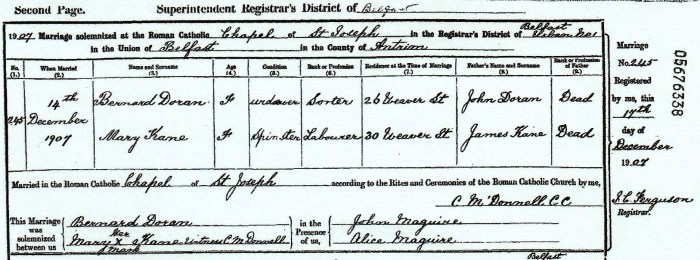 Second Page. Superintendent Registrar's District of Belfast
1907 Marriage solemnized at the Roman Catholic Chapel of St Joseph in the Registrar's District of Belfast No 1
in the Union of Belfast in the County of Antrim
No. (1.) When Married (2.) Name and Surname (3.) Age (4.) Condition (5.) Rank or Profession (6.) Residence at the Time of Marriage (7.) Father's Name and Surname (8.) Rank or Profession of Father (9.)
14th Bernard Doran F Sorter 26 Weaver St John Doran Dead
245 December
1907 Mary Kane F Spinster Labourer 30 Weaver St James Kane Dead
Married in the Roman Catholic Chapel of St Joseph according to the Rites and Ceremonies of the Roman Catholic Church by me,
C. McDonnell C C
This Marriage was solemnized between us
Bernard Doran
Mary Her X Mark Kane Witness C McDonnell
in the Presence of us,
John Maguire
Alice Maguire
Marriage
No. 245
Registered
by me, this
17th
day of
December
1907
J. C. Ferguson
Registrar.
05676338
Belfast